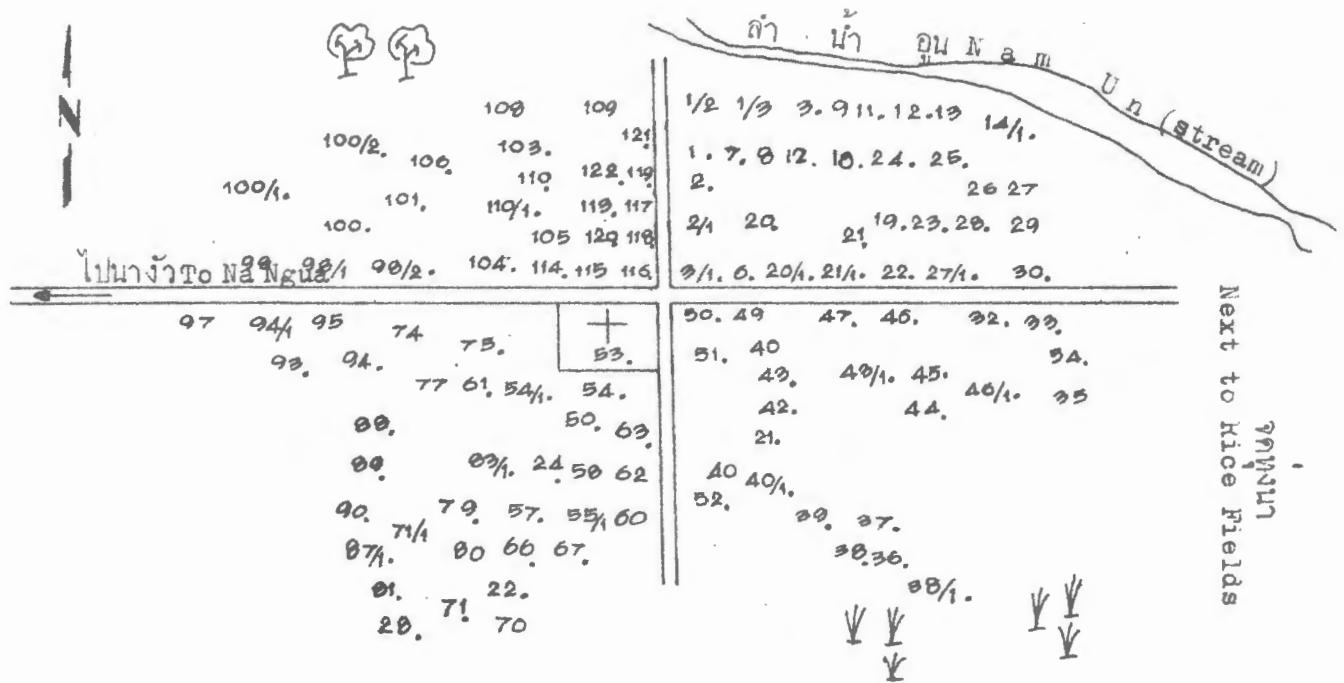 ลำ น้ำ อูน Nam Un (stream)
N
108 109 1/2 1/3 3. 9 11. 12. 13 14/1.
100/2. 106. 103. 121 1. 7. 8 12. 18. 24. 25.
100/1. 101. 110 122. 119. 2. 26 27
100. 110/1. 113. 117 2/1 20. 21. 19. 23. 28. 29
105 120 118
ไปนางัว To Na Ngua 98/1 98/2. 104. 114. 115 116. 3/1. 6. 20/1. 21/1. 22. 27/1. 30.
97 94/1 95 74 50. 49 47. 46. 32. 33.
93. 94. 75. 53. 51. 40 34.
77 61. 54/1. 54. 43. 43/1. 45. 46/1. 35
88. 50. 63. 42. 44.
21.
89. 83/1. 24. 58 62 40 40/1.
90. 71/1 79. 57. 55/1 60 52. 39. 37.
87/1. 80 66. 67. 38. 36.
81. 71. 22. 38/1.
28. 70
จดทุ่งนา
Next to Rice Fields